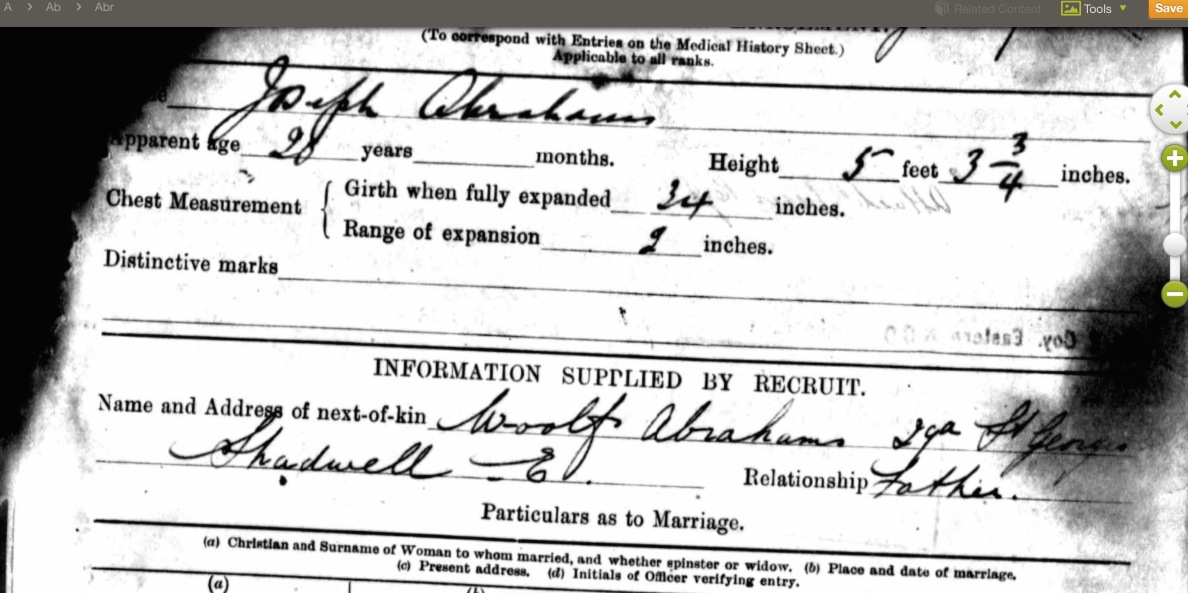 A > Ab > Abr
Related Content Tools Save
(To correspond with Entries on the Medical History Sheet.)
Applicable to all ranks.
Joseph Abrahams
Apparent age 28 years months. Height 5 feet 3 3/4 inches.
Chest Measurement { Girth when fully expanded 34 inches.
Range of expansion 2 inches.
Distinctive marks
Gov. Eastern
INFORMATION SUPPLIED BY RECRUIT.
Name and Address of next-of-kin Woolf Abrahams St Georges
Shadwell E. Relationship Father.
Particulars as to Marriage.
(a) Christian and Surname of Woman to whom married, and whether spinster or widow. (b) Place and date of marriage.
(c) Present address. (d) Initials of Officer verifying entry.
(a)